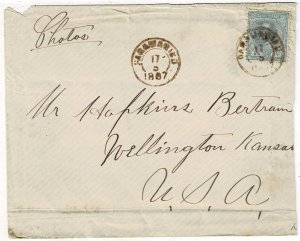 Photos
PARAMARIBO
17
3
1887
Mr Hopkins Bertram
Wellington Kansas
U.S.A.